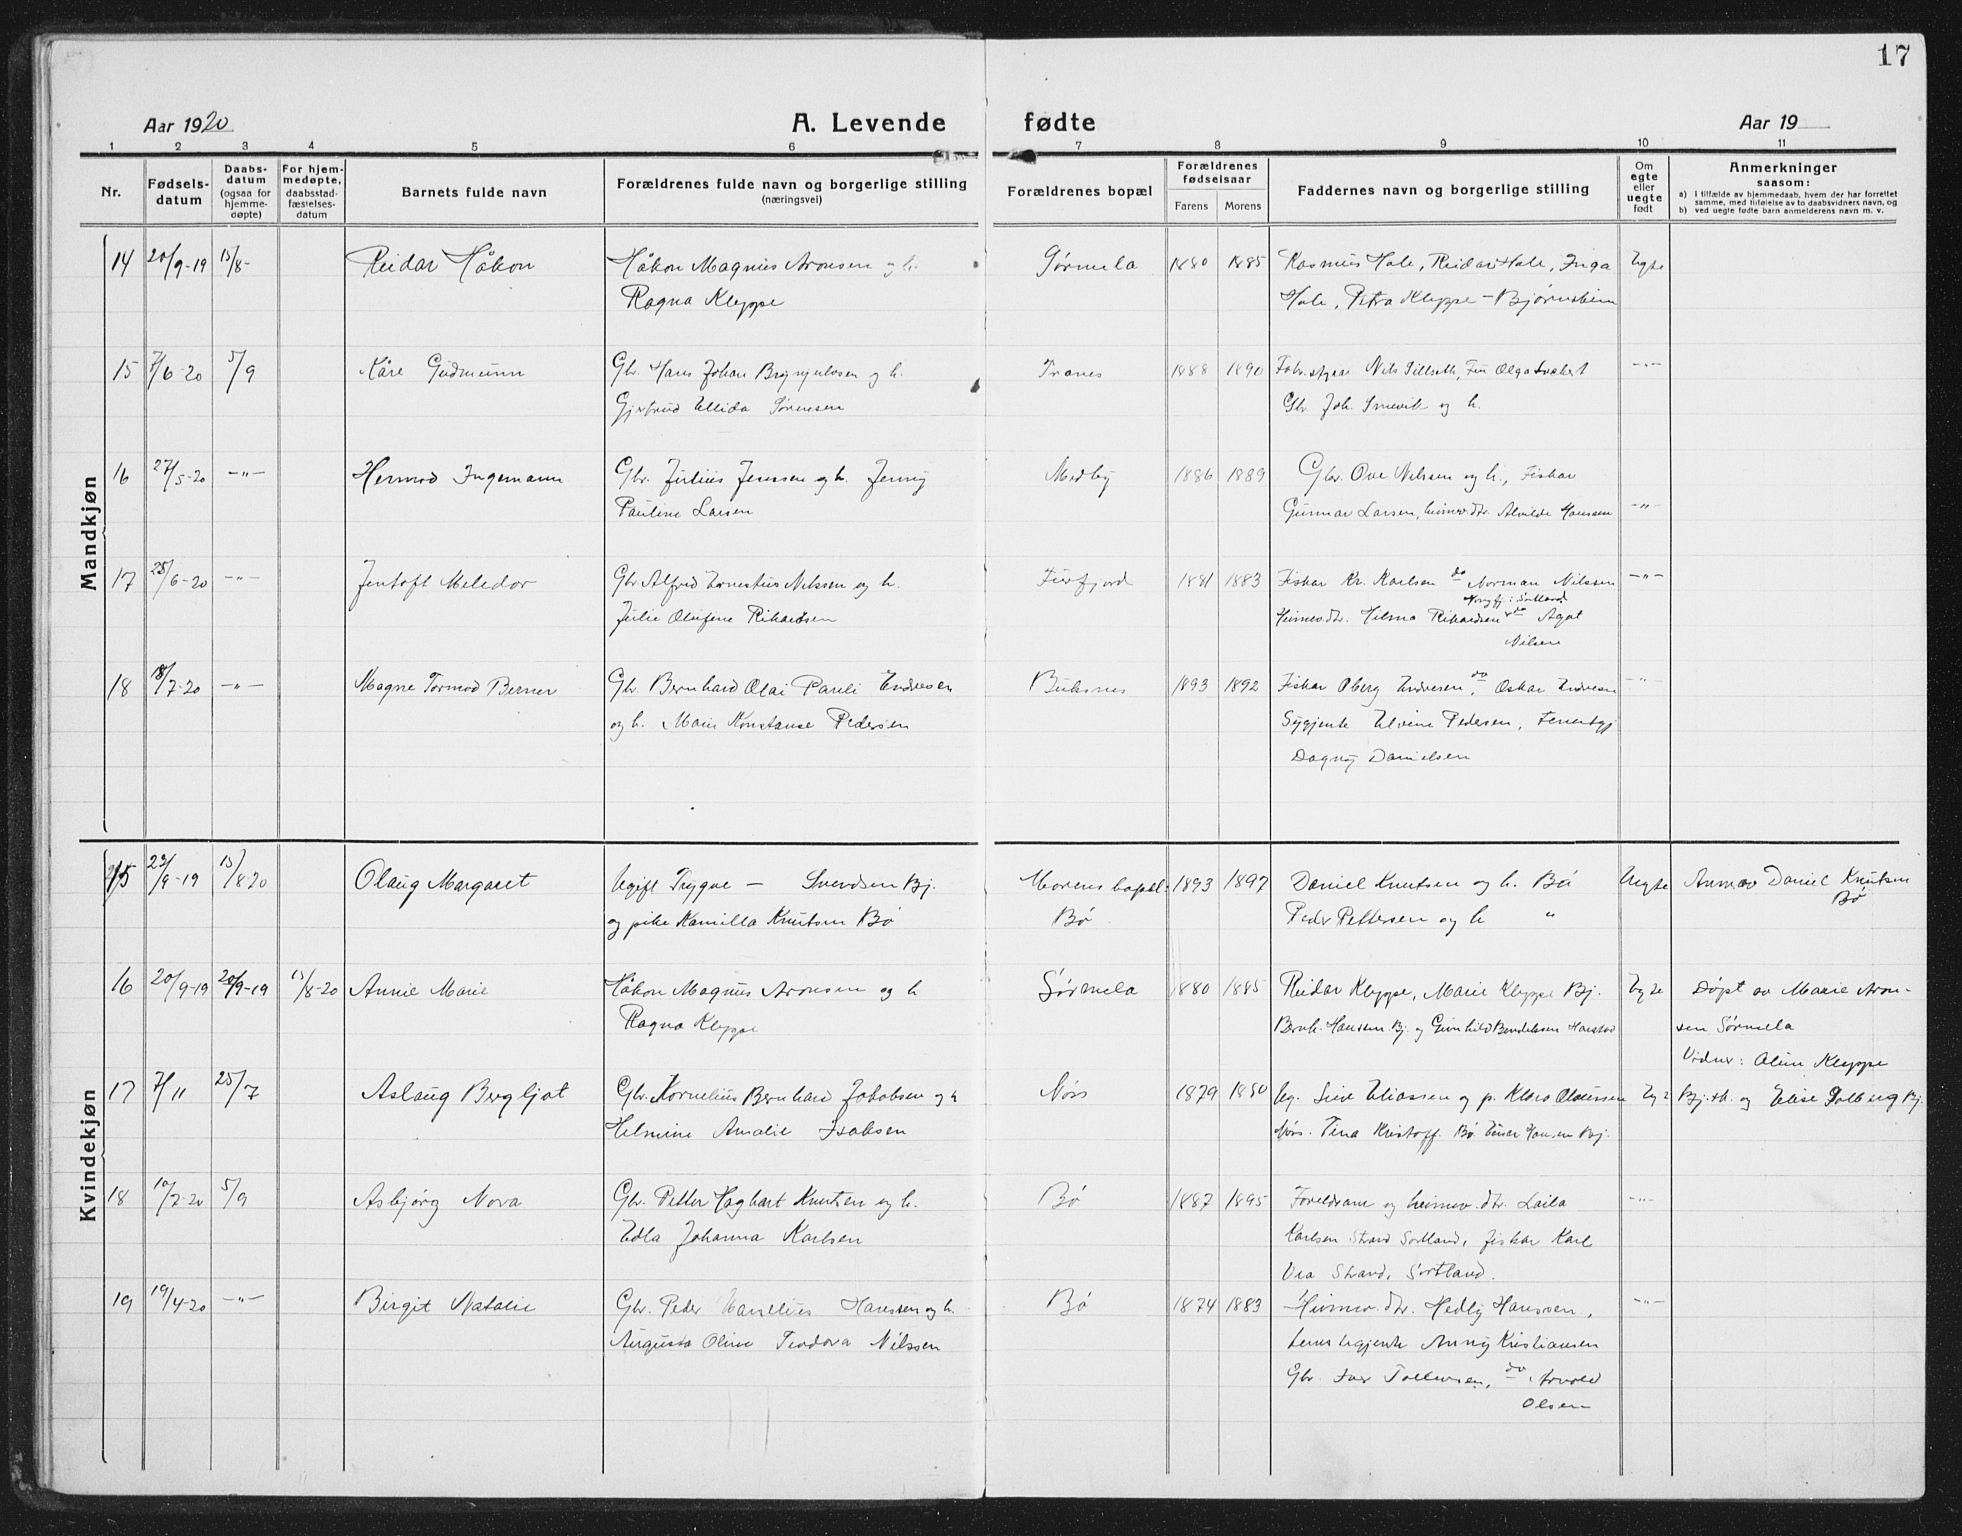 17
Aar 1920
A. Levende fødte
Aar 19
1 2 3 4 5 6 7 8 9 10 11
Nr.
Fødsels-
datum
Daabs-
datum
(ogsaa for
hjemme-
døpte)
For hjem-
medøpte,
daabsstad-
fæstelses-
datum
Barnets fulde navn
Forældrenes fulde navn og borgerlige stilling
(næringsvei)
Forældrenes bopæl
Forældrenes
fødselsaar
Farens Morens
Faddernes navn og borgerlige stilling
Om
egte
eller
uegte
født
Anmerkninger
saasom:
a) I tilfælde av hjemmedaab, hvem der har forrettet
samme, med tilføielse av to daabsvidners navn, og
b) ved uegte fødte barn anmelderens navn m. v.
Mandkjøn
14 20/9-19 15/8- Reidar Håkon Håkon Magnus Aronsen og h. Sørmela 1880 1885 Rasmus Hole, Reidar Hole, Inga Egte
Ragna Kleppe Hole, Petra Kleppe - Bjørnskinn
15 7/6-20 5/9 Kåre Gudmunn Gbr. Hans Johan Brynjulvsen og h. Tranes 1888 1890 Nils Sellseth, Olga -"-
Gjertrud Ellida Sørensen Gbr. Joh. og h.
16 27/5-20 -"- Hermod Ingemann Gbr. Julius Jenssen og h. Jenny Medby 1886 1889 Gbr. Ove Nilssen og h., Fiskar
Pauline Larsen Gunnar Larsen, heimev. dtr. Alvilde Hanssen -"-
17 25/6-20 -"- Jentoft Meledor Gbr. Alfred Ernestius Nilssen og h. Furfjord 1881 1883 Fiskar Kr. Karlsen do Norman Nilssen -"-
Julie Olufine Rikardsen Heimev. dtr. Helma Rikardsen do Agot
Nilsen
18 18/7-20 -"- Magne Tormod Berner Gbr. Bernhard Olai Pauli Endresen Buksnes 1893 1892 Fiskar Oberg Endresen, do Oskar Endresen -"-
og h. Marie Konstanse Pedersen Sygjente Elvine Pedersen,
Dagny Danielsen
Kvindekjøn
15 23/9-19 15/8-20 Olaug Margaret Ugift Trygve - Svendsen Bj. Morens bopæl: 1893 1897 Daniel Knutsen og h. Bø Uegte Anmav Daniel Knutsen
Bø
og pike Kamilla Knutsen Bø Bø Peder Pettersen og h "
16 20/9-19 20/9-19 15/8-20 Annie Marie Håkon Magnus Aronsen og h Sørmela 1880 1885 Reidar Kleppe, Marie Kleppe Bj. Egte Døpt av Marie Aron-
Ragna Kleppe Bernh. Hanssen Bj. og Gunhild Bendiksen Harstad sen Sørmela
Vidner: Oline Kleppe
17 7/11 25/7 Aslaug Bergljot Gbr. Kornelius Bernhard Jakobsen og h Nøss 1879 1880 Eliassen og p. Klara Olaussen Bj. sk. og Elise Solberg Bj.
Helmine Amalie Isaksen Nøss. Tina Kristoff. Bø Einar Hansen Bj.
18 10/7-20 5/9 Asbjørg Nova Gbr. Petter Hagbart Knutsen og h. Bø 1887 1895 Foreldrane og heimev. dtr. Laila -"-
Edla Johanna Karlsen Karlsen Strand Sortland, fiskar Karl
Vea Strand, Sortland.
19 19/4-20 -"- Birgit Natalie Gbr. Peder Hanssen og h. Bø 1874 1883 Heimev. dtr. Hedly Hanssen, -"-
Augusta Oline Teodora Nilssen Anny Kristiansen
Gbr. Tollevsen, do Arnold
Olsen